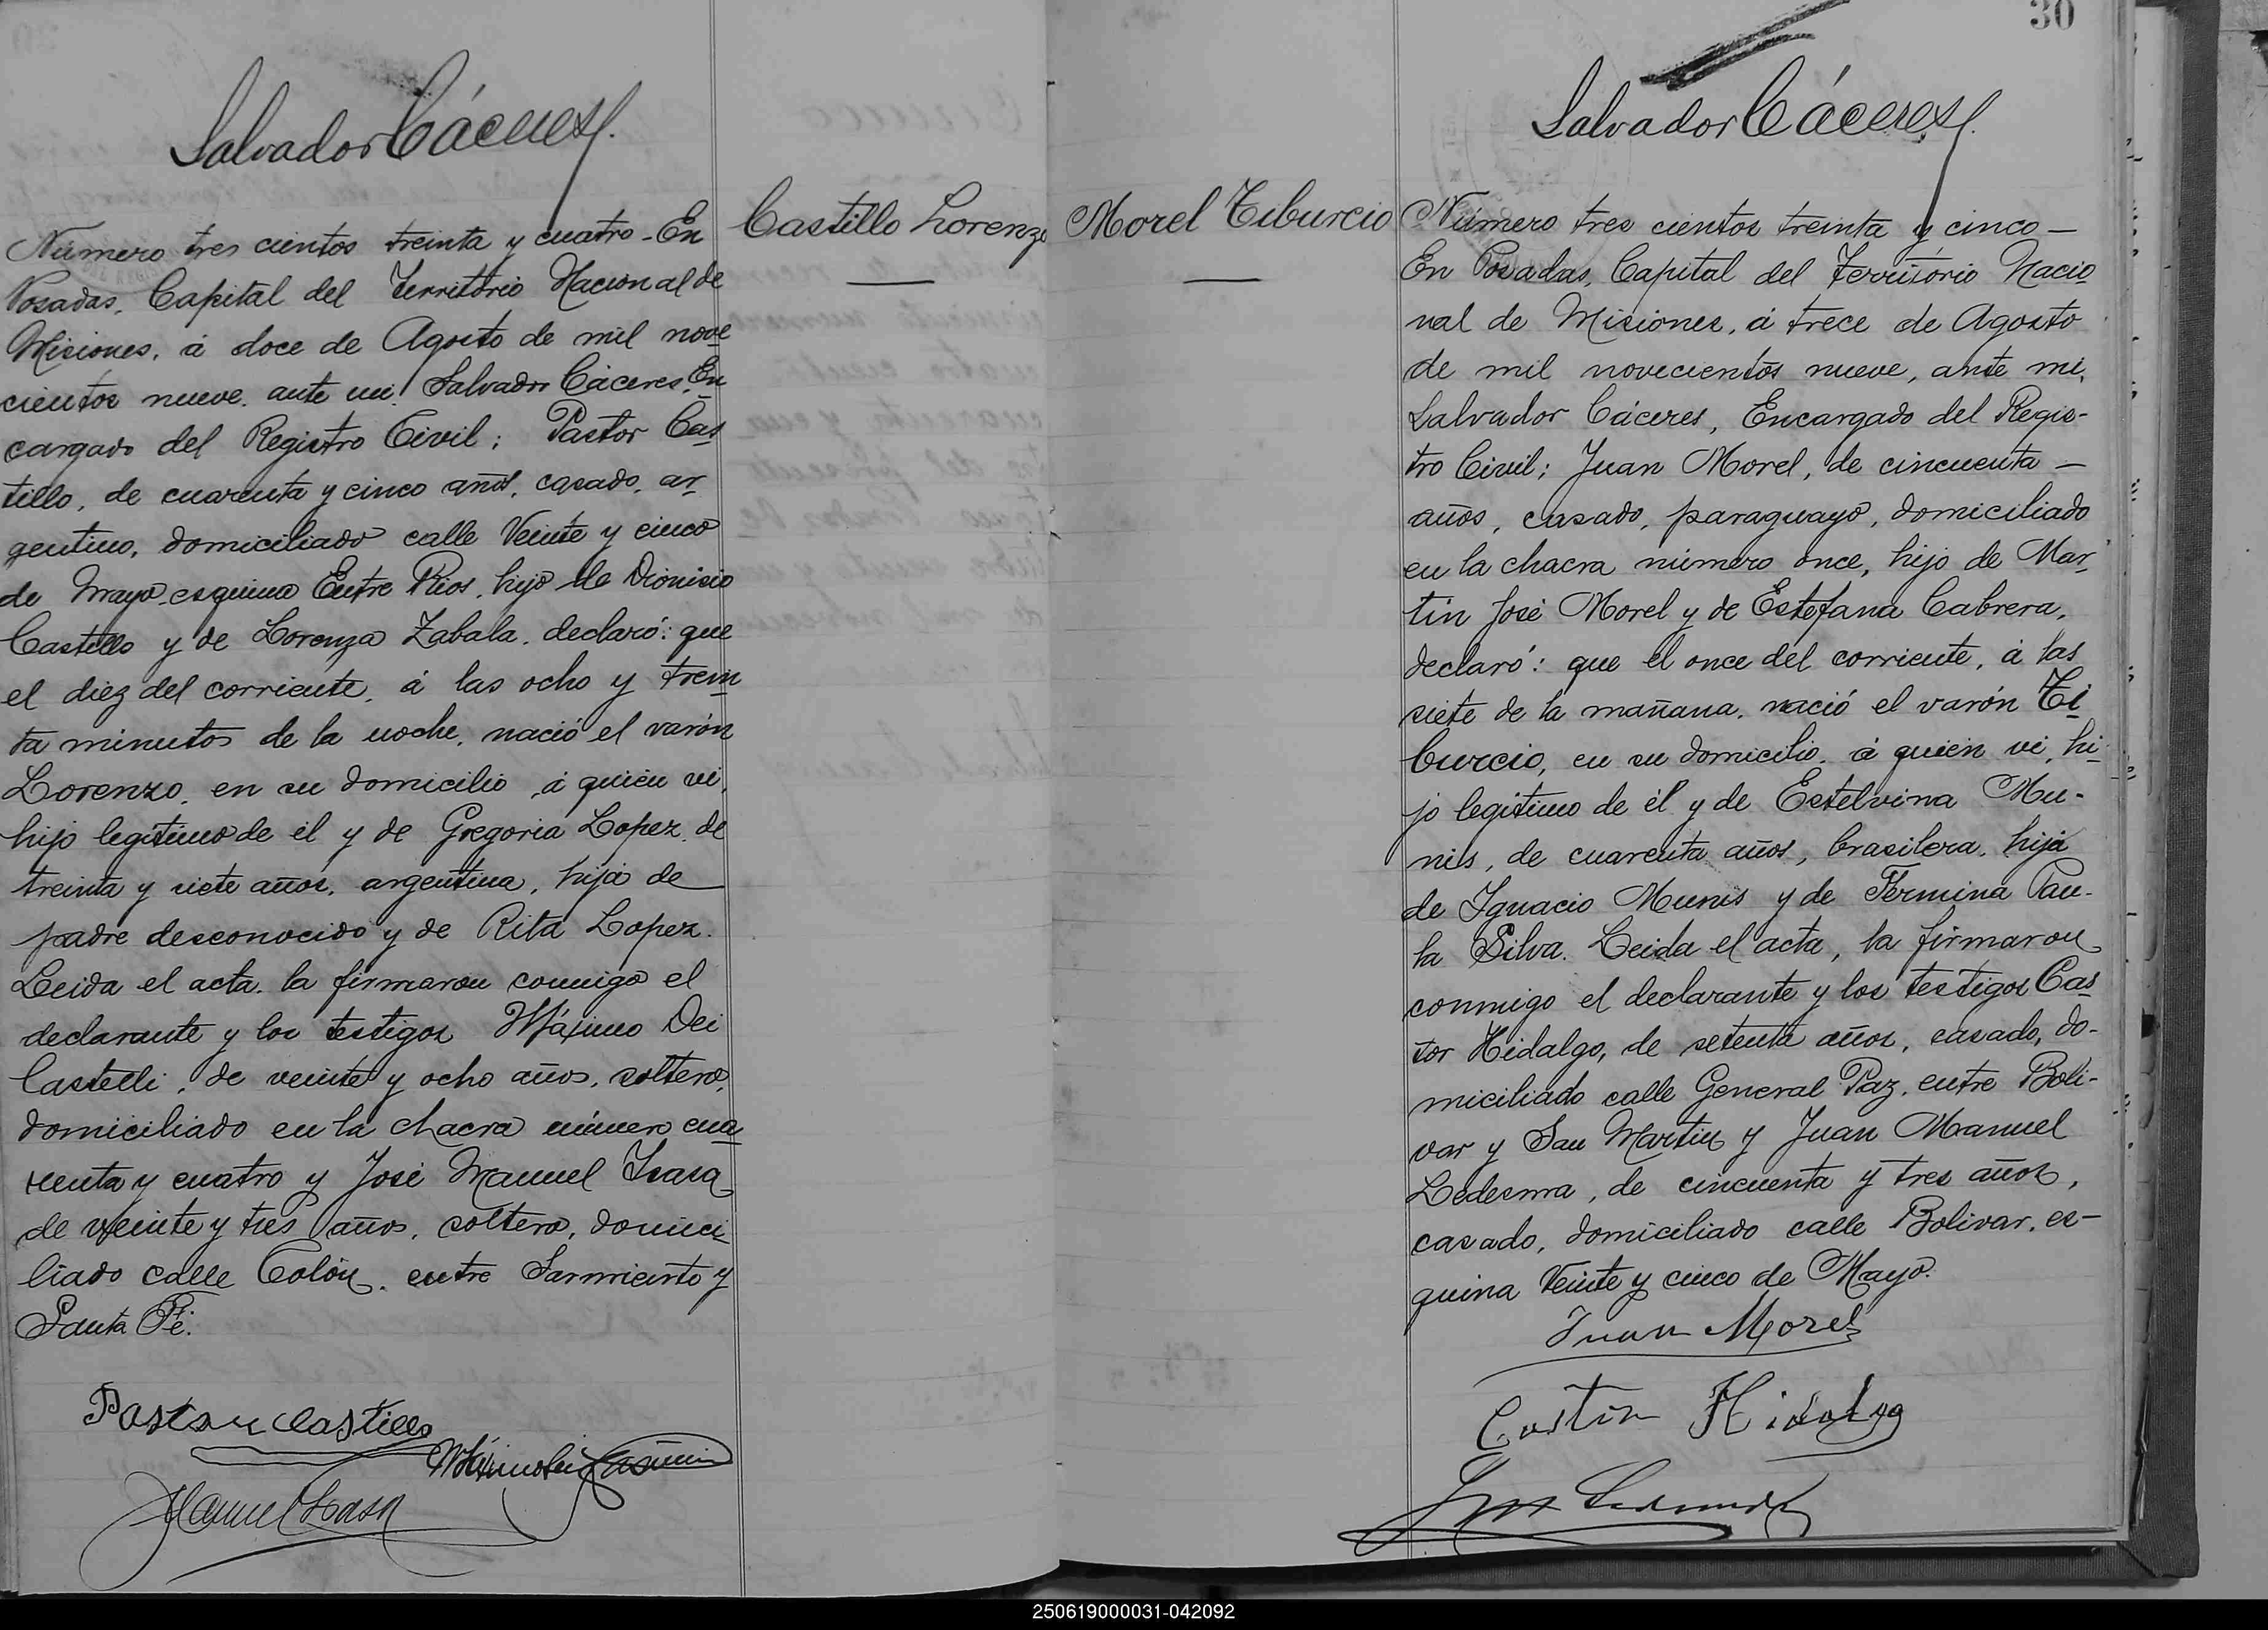 Salvador Cáceres
Número tres cientos treinta y cuatro - En
Posadas, Capital del Territorio Nacional de
Misiones, á doce de Agosto de mil nove
cientos nueve, ante mi, Salvador Cáceres, En
cargado del Registro Civil; Pastor Cas
tillo, de cuarenta y cinco años, casado, ar
gentino, domiciliado calle Veinte y cinco
de Mayo, esquina Entre Rios, hijo de Dionisio
Castillo y de Lorenza Zabala, declaró: que
el diez del corriente, á las ocho y trein
ta minutos de la noche, nació el varón
Lorenzo, en su domicilio, á quien vi,
hijo legítimo de él y de Gregoria Lopez, de
treinta y siete años, argentina, hija de
padre desconocido y de Rita Lopez.
Leida el acta, la firmaron conmigo el
declarante y los testigos Máximo Dei
Castelli, de veinte y ocho años, soltero,
domiciliado en la chacra número cua
renta y cuatro y José Manuel Isasa
de veinte y tres años, soltero, domici
liado calle Colón, entre Sarmiento y
Santa Fé.
Pastor Castillo
Manuel Isasa
Castillo Lorenzo
30
Salvador Cáceres
Morel Tiburcio
Número tres cientos treinta y cinco —
En Posadas, Capital del Territorio Nacio
nal de Misiones, á trece de Agosto
de mil novecientos nueve, ante mi,
Salvador Cáceres, Encargado del Regis-
tro Civil; Juan Morel, de cincuenta —
años, casado, paraguayo, domiciliado
en la chacra número once, hijo de Mar
tín José Morel y de Estefana Cabrera,
declaró: que el once del corriente, á las
siete de la mañana, nació el varón Ti
burcio, en su domicilio, á quien vi, hi
jo legítimo de él y de Estelvina Mu-
nis, de cuarenta años, brasilera, hija
de Ignacio Munis y de Fermina Pau-
la Silva. Leida el acta, la firmaron
conmigo el declarante y los testigos Cas
tor Hidalgo, de setenta años, casado, do-
miciliado calle General Paz, entre Boli-
var y San Martin y Juan Manuel
Ledesma, de cincuenta y tres años,
casado, domiciliado calle Bolivar, es-
quina Veinte y cinco de Mayo.
Juan Morel
Castor Hidalgo
250619000031-042092